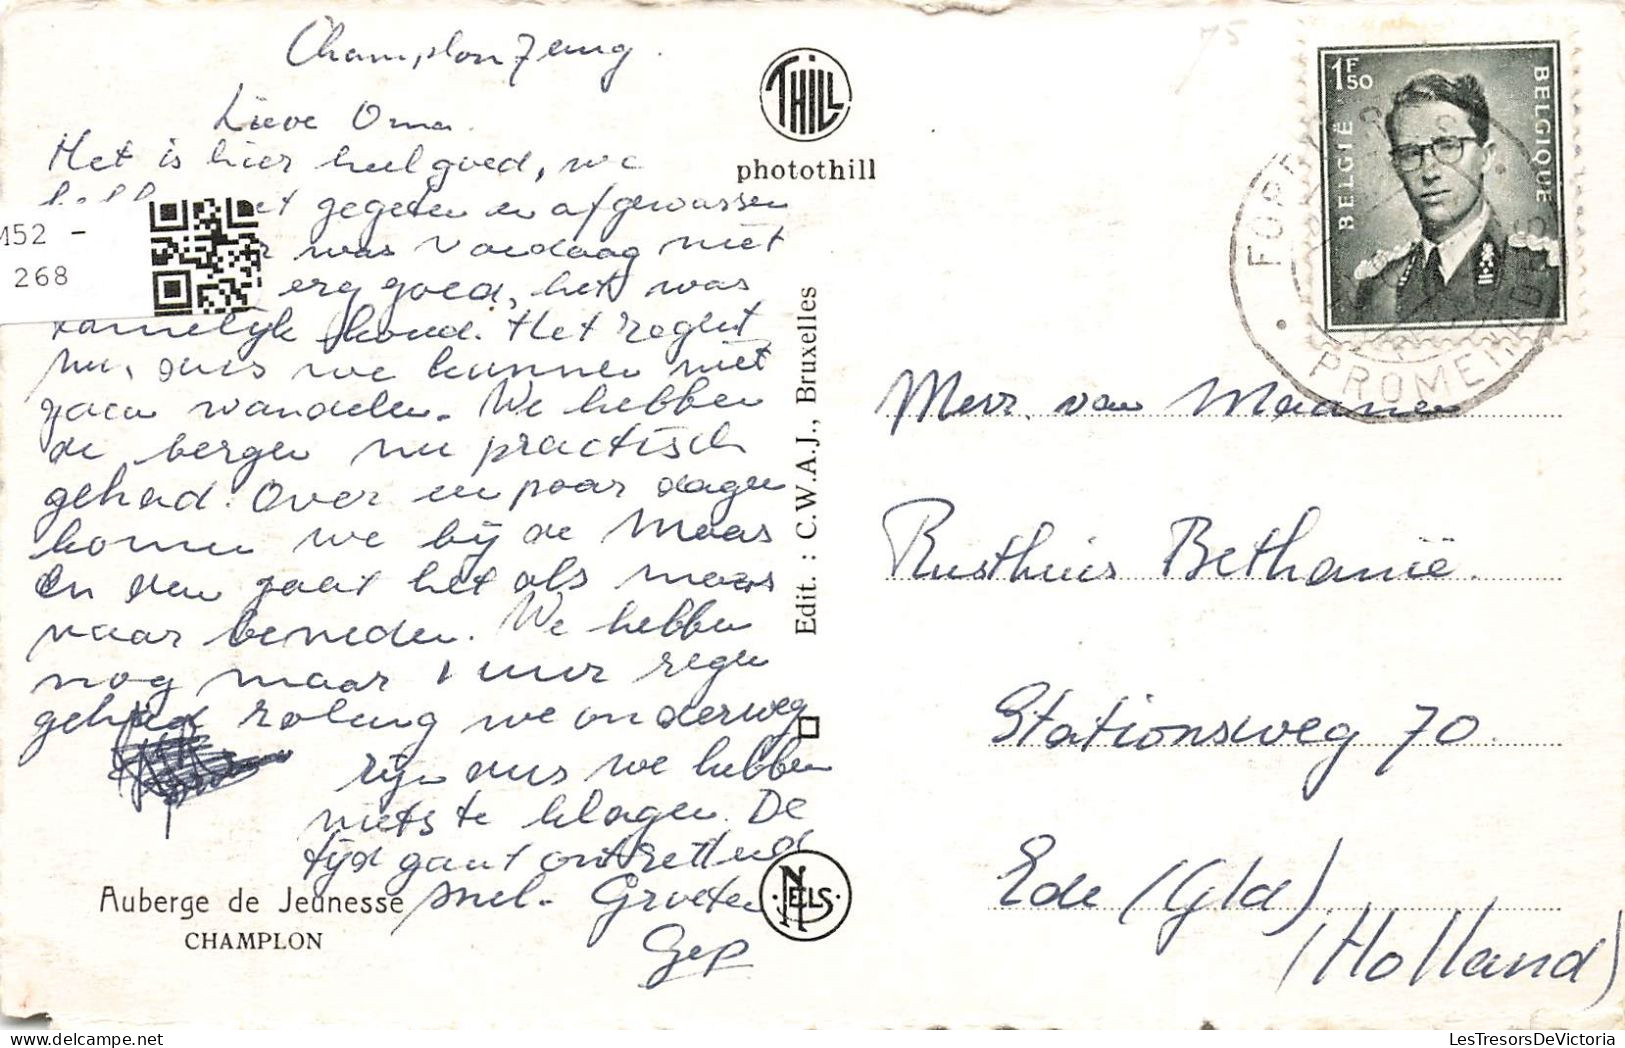 Champlon 7 aug.
Lieve Oma.
Het is hier heel goed, we
gegeten en afgewassen
was vandaag niet
erg goed, het was
tamelijk koud. Het regent
nu, dus we kunnen niet
gaan wandelen. We hebben
de bergen nu practisch
gehad. Over een paar dagen
komen we bij de Maas
en dan gaat het als maar
naar beneden. We hebben
nog maar 1 uur regen
gehad zolang we onderweg
zijn dus we hebben
niets te klagen. De
tijd gaat ontzettend
snel. Groeten
Gep
Auberge de Jeunesse
CHAMPLON
M52 -
268
THILL
photothill
Edit. : C.W.A.J., Bruxelles
NELS
75
1F50
BELGIË
BELGIQUE
PROMENADES
Mevr. van Maanen
Rusthuis Bethanië.
Stationsweg 70.
Ede (Gld)
(Holland)
LesTresorsDeVictoria